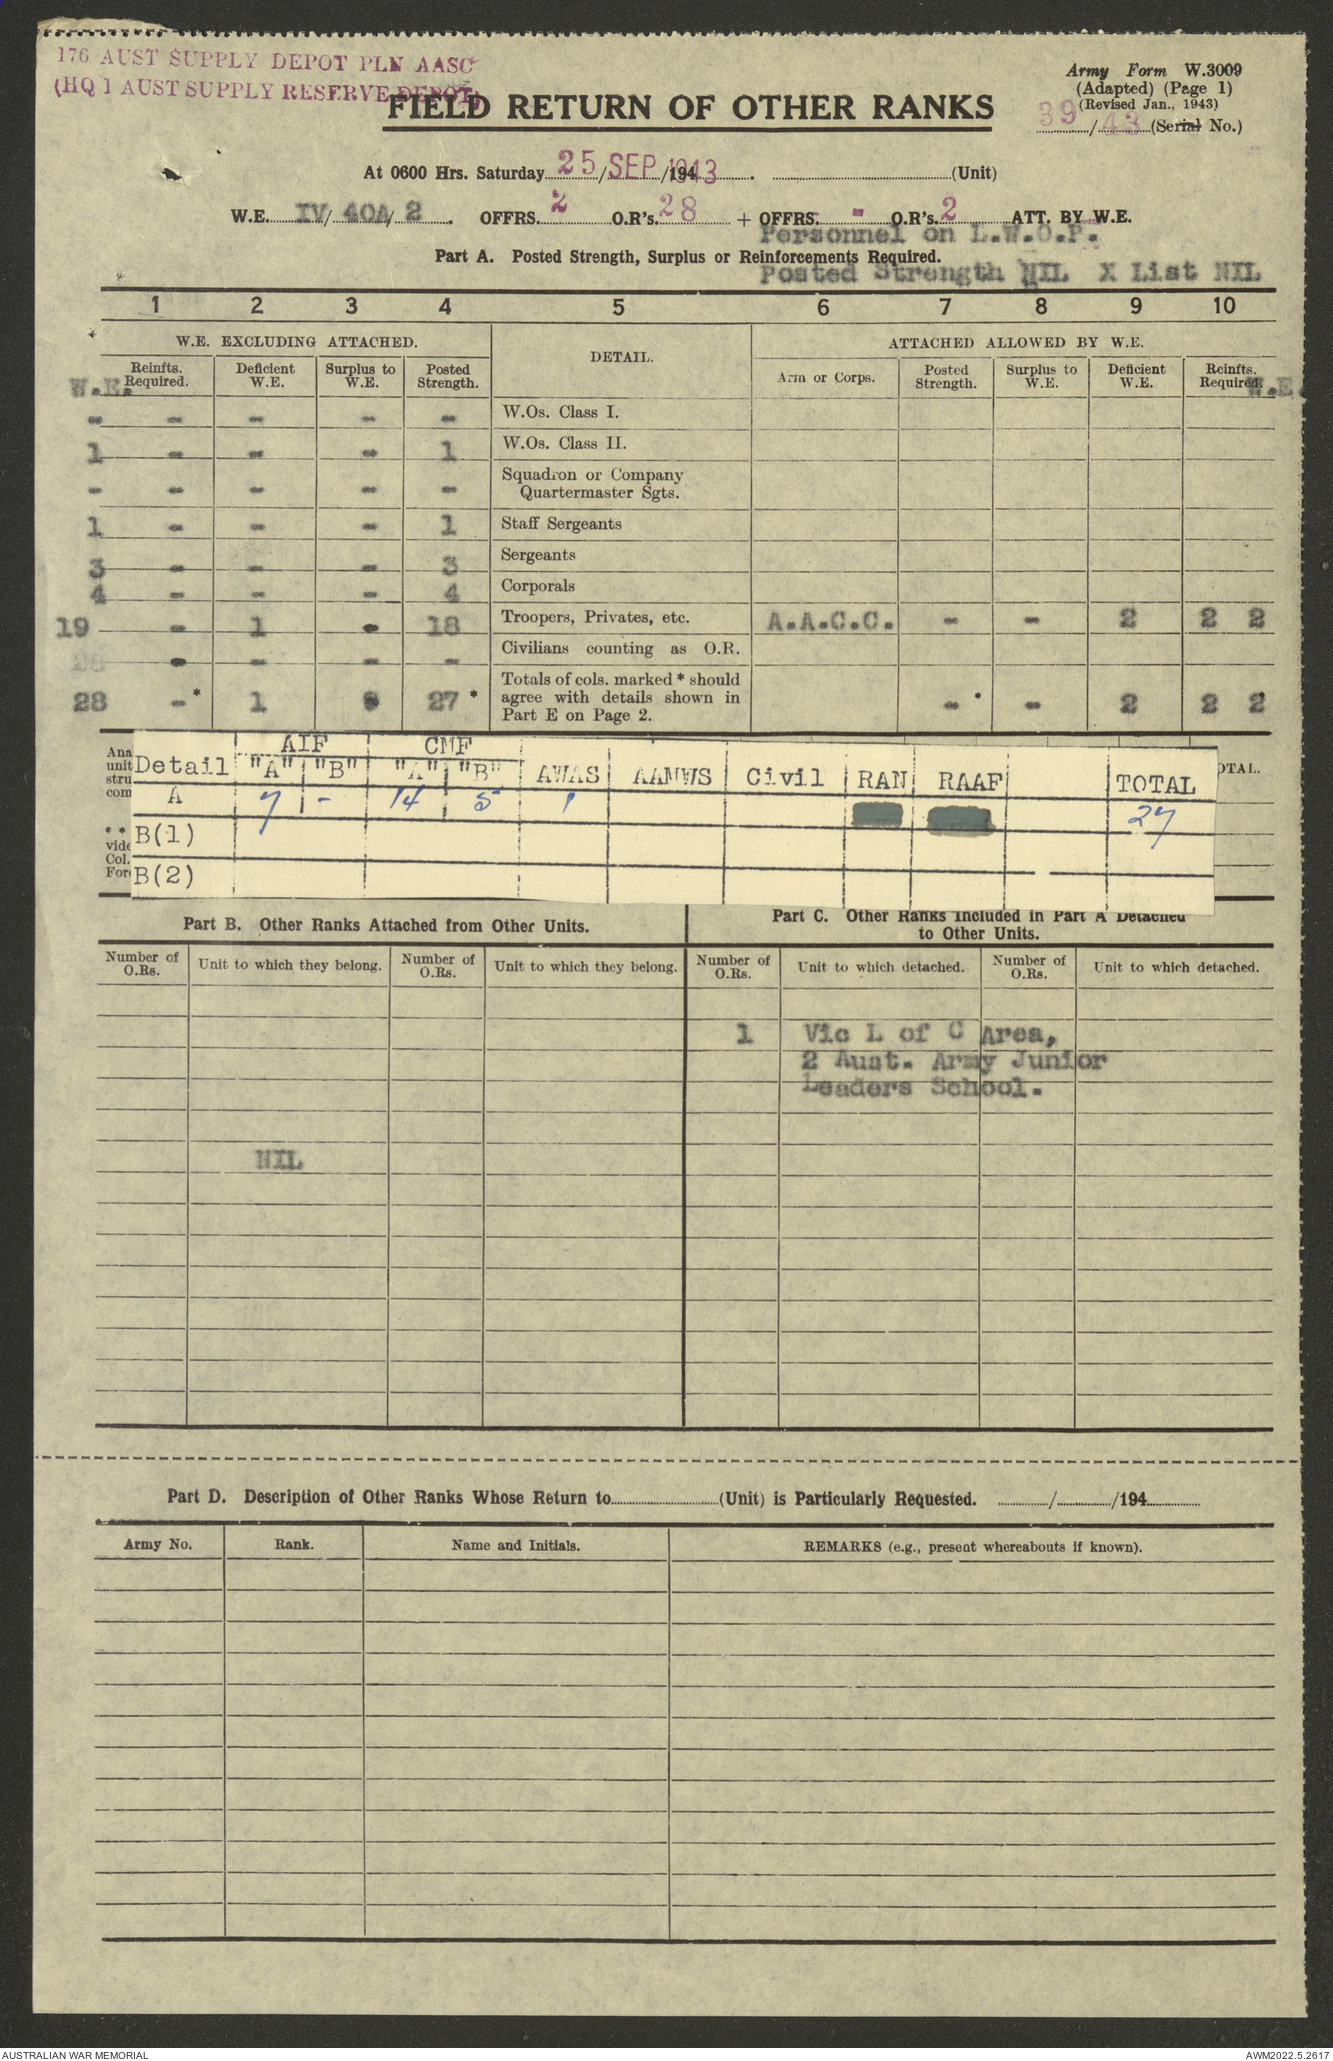 176 AUST SUPPLY DEPOT PLN AASC
(HQ 1 AUST SUPPLY RESERVE DEPOT)
Army Form W.3009
(Adapted) (Page 1)
(Revised Jan., 1943)
39/43 (Serial No.)
FIELD RETURN OF OTHER RANKS
At 0600 Hrs. Saturday 25/SEP/1943. (Unit)
W.E. IV/40A/2. OFFRS. 2 O.R's. 28 + OFFRS. - O.R's. 2 ATT. BY W.E.
Personnel on L.W.O.P.
Part A. Posted Strength, Surplus or Reinforcements Required.
Posted Strength NIL X List NIL
1 2 3 4 5 6 7 8 9 10
W.E. EXCLUDING ATTACHED. DETAIL. ATTACHED ALLOWED BY W.E.
W.E. Reinfts. Required. Deficient W.E. Surplus to W.E. Posted Strength. Arm or Corps. Posted Strength. Surplus to W.E. Deficient W.E. Reinfts. Required. W.E.
- - - - - W.Os. Class I.
1 - - - 1 W.Os. Class II.
- - - - - Squadron or Company Quartermaster Sgts.
1 - - - 1 Staff Sergeants
3 - - - 3 Sergeants
4 - - - 4 Corporals
19 - 1 - 18 Troopers, Privates, etc. A.A.C.C. - - 2 2 2
28 - - - - Civilians counting as O.R.
28 -* 1 - 27* Totals of cols. marked * should agree with details shown in Part E on Page 2. - - 2 2 2
Ana
unit
stru
com
* *
vide
Col.
For
OTAL.
AIF CMF
Detail "A" "B" "A" "B" AWAS AAMWS Civil RAN RAAF TOTAL
A 7 - 14 5 1 27
B(1)
B(2)
Part B. Other Ranks Attached from Other Units.
Part C. Other Ranks Included in Part A Detached
to Other Units.
Number of O.Rs. Unit to which they belong. Number of O.Rs. Unit to which they belong. Number of O.Rs. Unit to which detached. Number of O.Rs. Unit to which detached.
1 Vic L of C Area,
2 Aust. Army Junior
Leaders School.
NIL
Part D. Description of Other Ranks Whose Return to (Unit) is Particularly Requested. / /194
Army No. Rank. Name and Initials. REMARKS (e.g., present whereabouts if known).
AUSTRALIAN WAR MEMORIAL AWM2022.5.2617